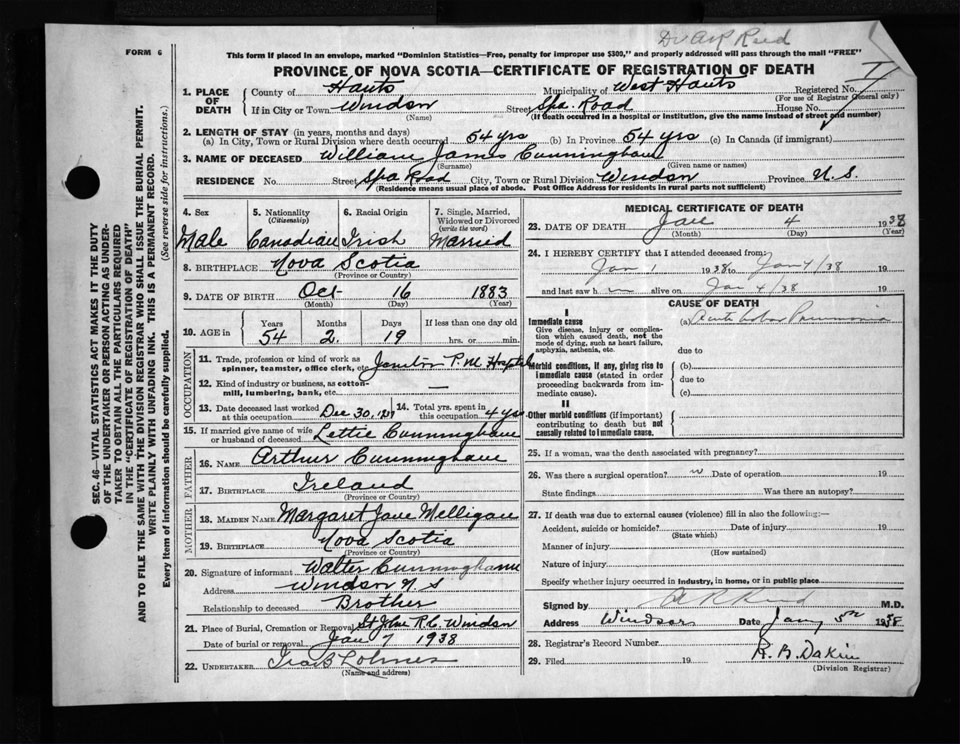 Dr A R Reid
FORM 6
This form if placed in an envelope, marked "Dominion Statistics—Free, penalty for improper use $300," and properly addressed will pass through the mail "FREE"
PROVINCE OF NOVA SCOTIA—CERTIFICATE OF REGISTRATION OF DEATH
SEC. 46—VITAL STATISTICS ACT MAKES IT THE DUTY
OF THE UNDERTAKER OR PERSON ACTING AS UNDER-
TAKER TO OBTAIN ALL THE PARTICULARS REQUIRED
IN THE "CERTIFICATE OF REGISTRATION OF DEATH"
AND TO FILE THE SAME WITH THE DIVISION REGISTRAR WHO SHALL ISSUE THE BURIAL PERMIT.
WRITE PLAINLY WITH UNFADING INK. THIS IS A PERMANENT RECORD.
Every item of information should be carefully supplied. (See reverse side for instructions.)
1. PLACE OF DEATH
County of Hants Municipality of West Hants Registered No.
(For use of Registrar General only)
If in City or Town Windsor Street Spa Road House No.
(Name) (If death occurred in a hospital or institution, give the name instead of street and number)
2. LENGTH OF STAY (in years, months and days)
(a) In City, Town or Rural Division where death occurred 54 yrs (b) In Province 54 yrs (c) In Canada (if immigrant)
3. NAME OF DECEASED William James Cunningham
(Surname) (Given name or names)
RESIDENCE No. Street Spa Road City, Town or Rural Division Windsor Province N.S.
(Residence means usual place of abode. Post Office Address for residents in rural parts not sufficient)
4. Sex 5. Nationality (Citizenship) 6. Racial Origin 7. Single, Married, Widowed or Divorced (write the word)
Male Canadian Irish Married
8. BIRTHPLACE Nova Scotia
(Province or Country)
9. DATE OF BIRTH Oct 16 1883
(Month) (Day) (Year)
10. AGE in Years Months Days If less than one day old
54 2 19 hrs. or min.
OCCUPATION
11. Trade, profession or kind of work as
spinner, teamster, office clerk, etc. Janitor P.M. Hospital
12. Kind of industry or business, as cotton-
mill, lumbering, bank, etc. —
13. Date deceased last worked at this occupation Dec 30, 1937 14. Total yrs. spent in this occupation 4 yrs
15. If married give name of wife
or husband of deceased Lettie Cunningham
FATHER
16. NAME Arthur Cunningham
17. BIRTHPLACE Ireland
(Province or Country)
MOTHER
18. MAIDEN NAME Margaret Jane Melligan
19. BIRTHPLACE Nova Scotia
(Province or Country)
20. Signature of informant Walter Cunningham
Address Windsor N S
Relationship to deceased Brother
21. Place of Burial, Cremation or Removal St John R.C. Windsor
Date of burial or removal Jan 7 1938
22. UNDERTAKER
(Name and address)
MEDICAL CERTIFICATE OF DEATH
23. DATE OF DEATH Jan 4 1938
(Month) (Day) (Year)
24. I HEREBY CERTIFY that I attended deceased from:
Jan 1 1938 to Jan 4/38 19
and last saw h m alive on Jan 4/38 19
CAUSE OF DEATH
I
Immediate cause (a) Acute Lobar Pneumonia
Give disease, injury or complica-
tion which caused death, not the
mode of dying, such as heart failure,
asphyxia, asthenia, etc. due to
Morbid conditions, if any, giving rise to (b)
immediate cause (stated in order
proceeding backwards from im- due to
mediate cause). (c)
II
Other morbid conditions (if important)
contributing to death but not
causally related to immediate cause.
25. If a woman, was the death associated with pregnancy?
26. Was there a surgical operation? Date of operation 19
State findings Was there an autopsy?
27. If death was due to external causes (violence) fill in also the following:—
Accident, suicide or homicide? Date of injury 19
(State which)
Manner of injury
(How sustained)
Nature of injury
Specify whether injury occurred in industry, in home, or in public place
Signed by A R Reid M.D.
Address Windsor Date Jany 5th 1938
28. Registrar's Record Number
29. Filed 19 R. B. Dakin
(Division Registrar)